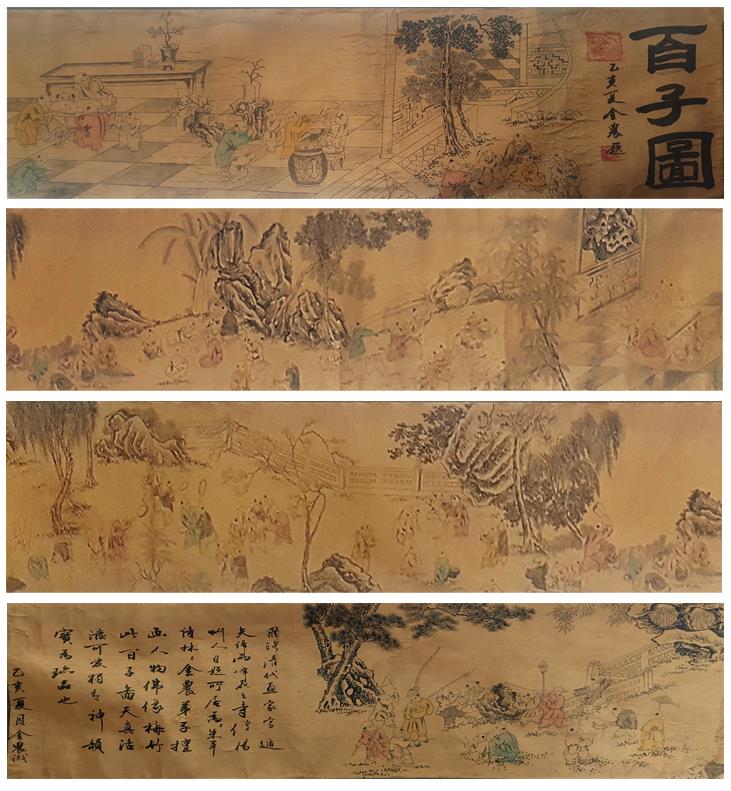 百子圖
乙亥夏金農題
羅聘清代画家字遯
夫峰花之寺僧揚
州人自题所居為朱草
诗林金農弟子擅
画人物佛像梅竹
此百子啚天真活
潑可爱独有神韻
寳为珍品也
乙亥夏月金農识